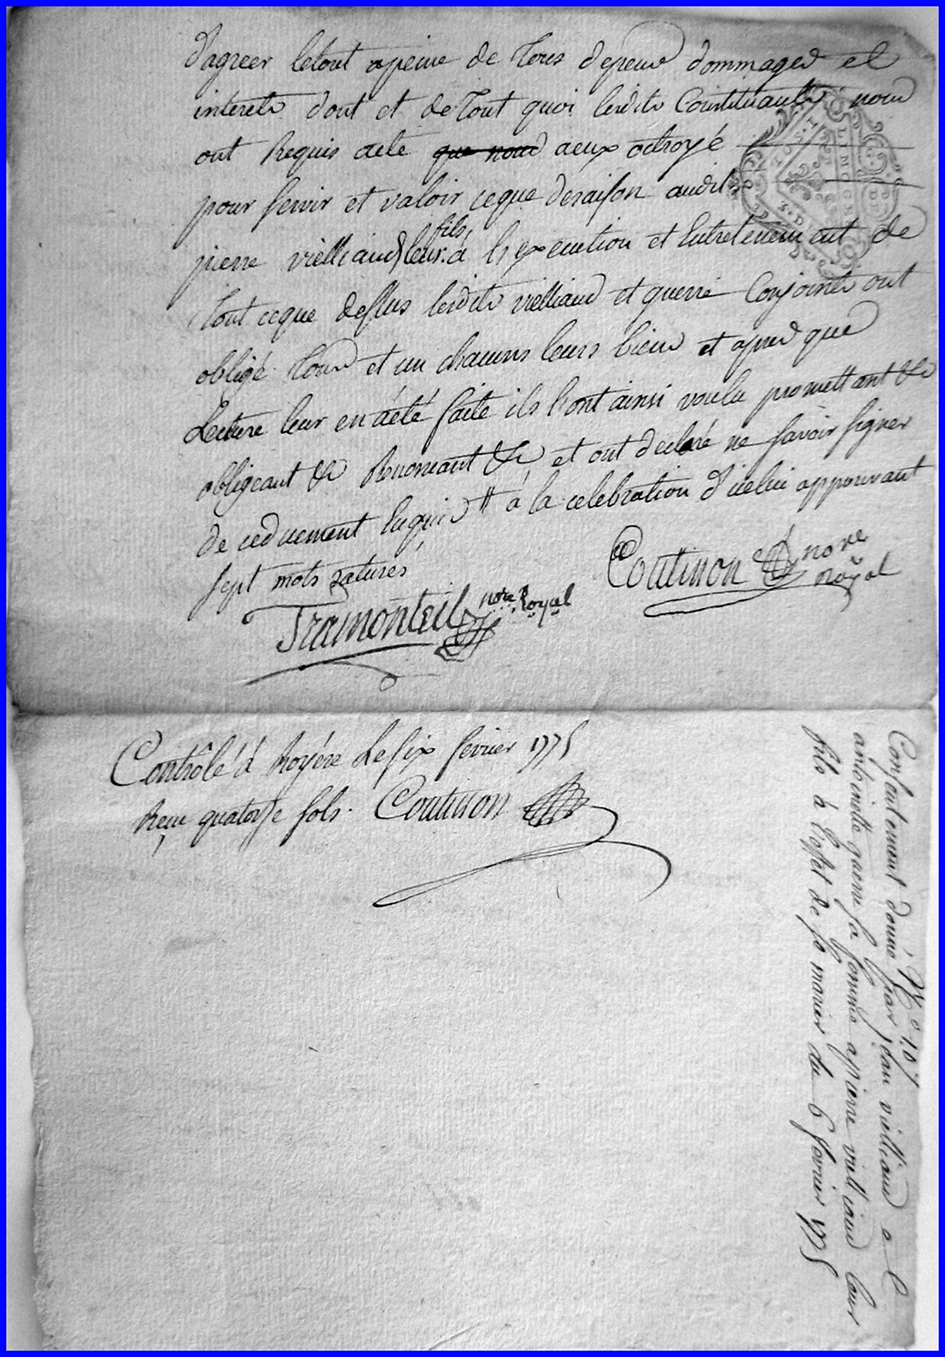 d'agreer letout apeine de tous depens dommages et
interets dont et de tout quoi lesdits Constituants nous
ont Requis acte que nous aeux octroyé
pour servir et valoir ceque deraison audit
pierre vielliaud leur fils, à l'execution et Entretenement de
tout ceque dessus lesdits vielliaud et querre Conjoints ont
obligé tous et un chacuns leurs biens et apres que
Lecture leur en aeté faite ils l'ont ainsi voulu promettant &c
obligeant &c Renoncant &c et ont declaré ne savoir signer
de ceduement Enquis à la celebration d'icelui approuvant
sept mots raturés
Coutisson nore Royal
Tramonteil nore Royal
LIMOGES
Contrôlé à Royére Le six fevrier 1775
Reçu quatorze sols. Coutisson
N° 107
Consentement donné par jean vielliaud et
antoinette querre sa femme apierre vielliaud leur
fils à l'effet de se marier du 6 fevrier 1775